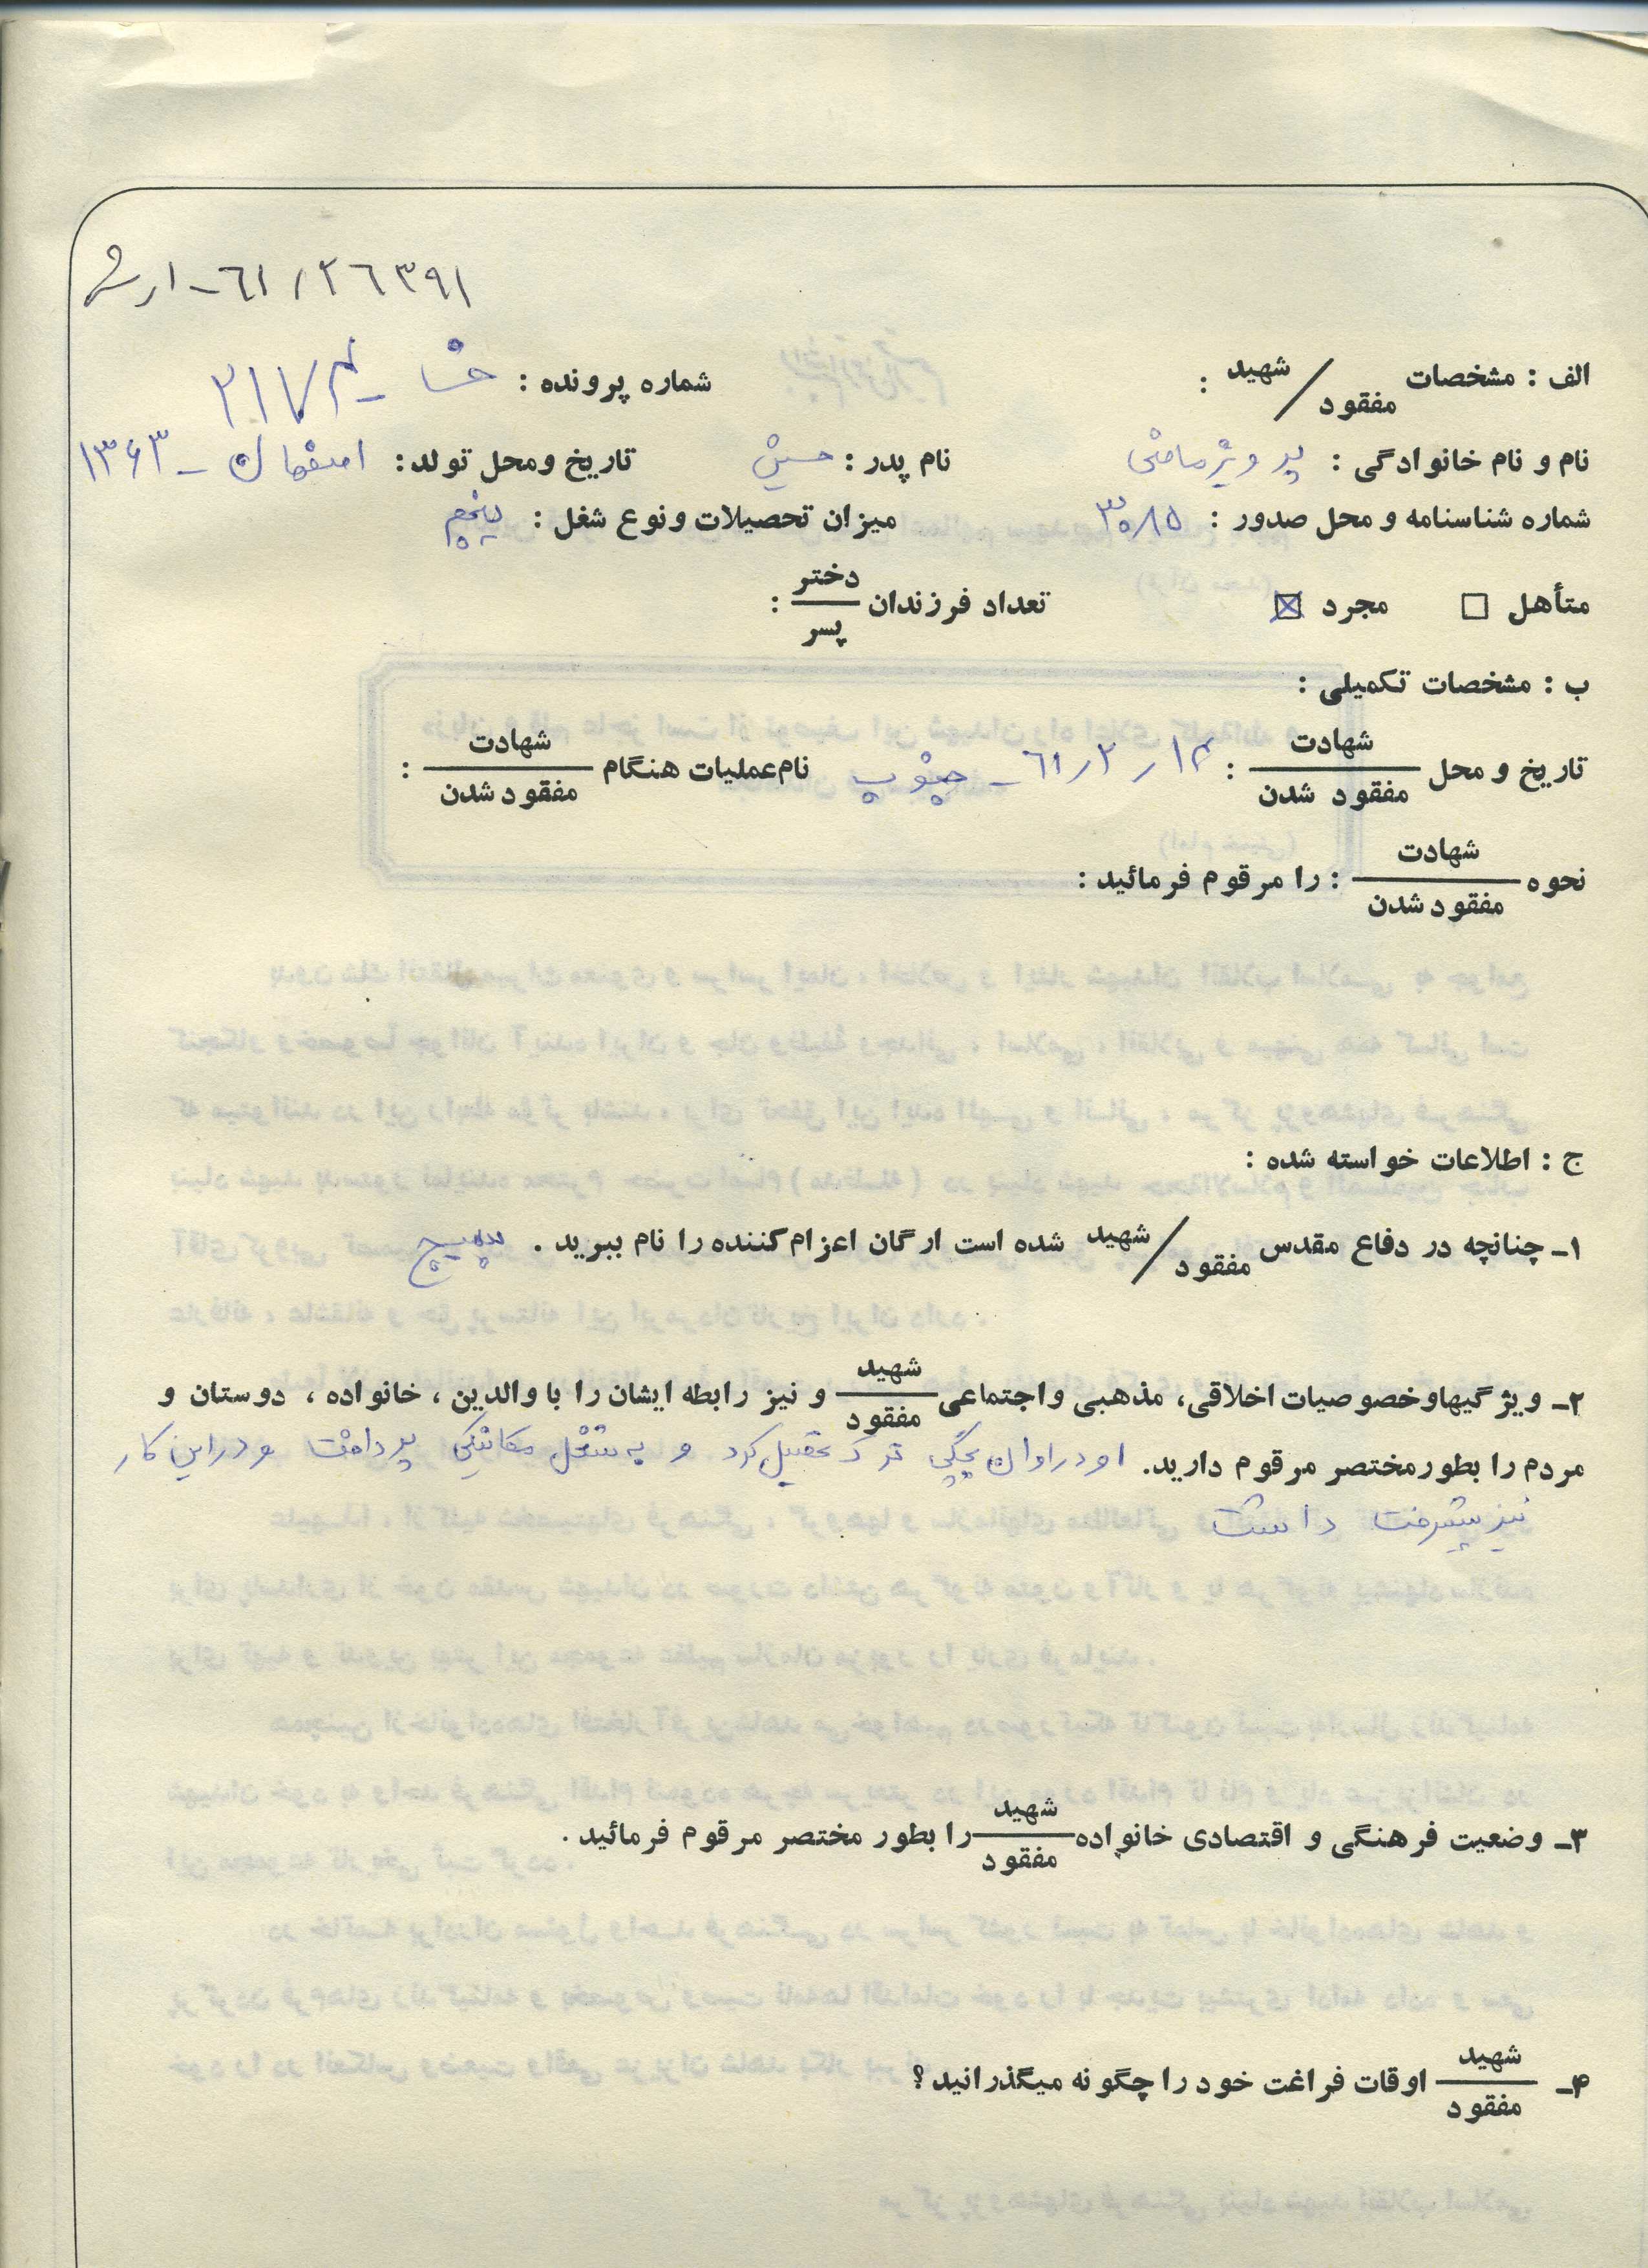 ۶۱/۲۶۳۹۱-ارش
الف : مشخصات شهید / مفقود :
شماره پرونده : خش - ۲۱۷۴
نام و نام خانوادگی : پرویز ضامنی نام پدر : حسین تاریخ ومحل تولد : اصفهان - ۱۳۴۳
شماره شناسنامه و محل صدور : ۳۰۸۵ میزان تحصیلات ونوع شغل : پنجم
متأهل ☐ مجرد ☒ تعداد فرزندان دختر / پسر :
ب : مشخصات تکمیلی :
تاریخ و محل شهادت / مفقود شدن : ۶۱/۲/۱۴ - جنوب نام عملیات هنگام شهادت / مفقود شدن :
نحوه شهادت / مفقود شدن : را مرقوم فرمائید :
ج : اطلاعات خواسته شده :
۱ـ چنانچه در دفاع مقدس شهید / مفقود شده است ارگان اعزام کننده را نام ببرید . بسیج
۲ـ ویژگیهاوخصوصیات اخلاقی، مذهبی واجتماعی شهید / مفقود و نیز رابطه ایشان را با والدین ، خانواده ، دوستان و
مردم را بطورمختصر مرقوم دارید. او در اوان بچگی ترک تحصیل کرد و به شغل مکانیکی پرداخت و در این کار
نیز پیشرفت داشت
۳ـ وضعیت فرهنگی و اقتصادی خانواده شهید / مفقود را بطور مختصر مرقوم فرمائید .
۴ـ شهید / مفقود اوقات فراغت خود را چگونه میگذرانید ؟